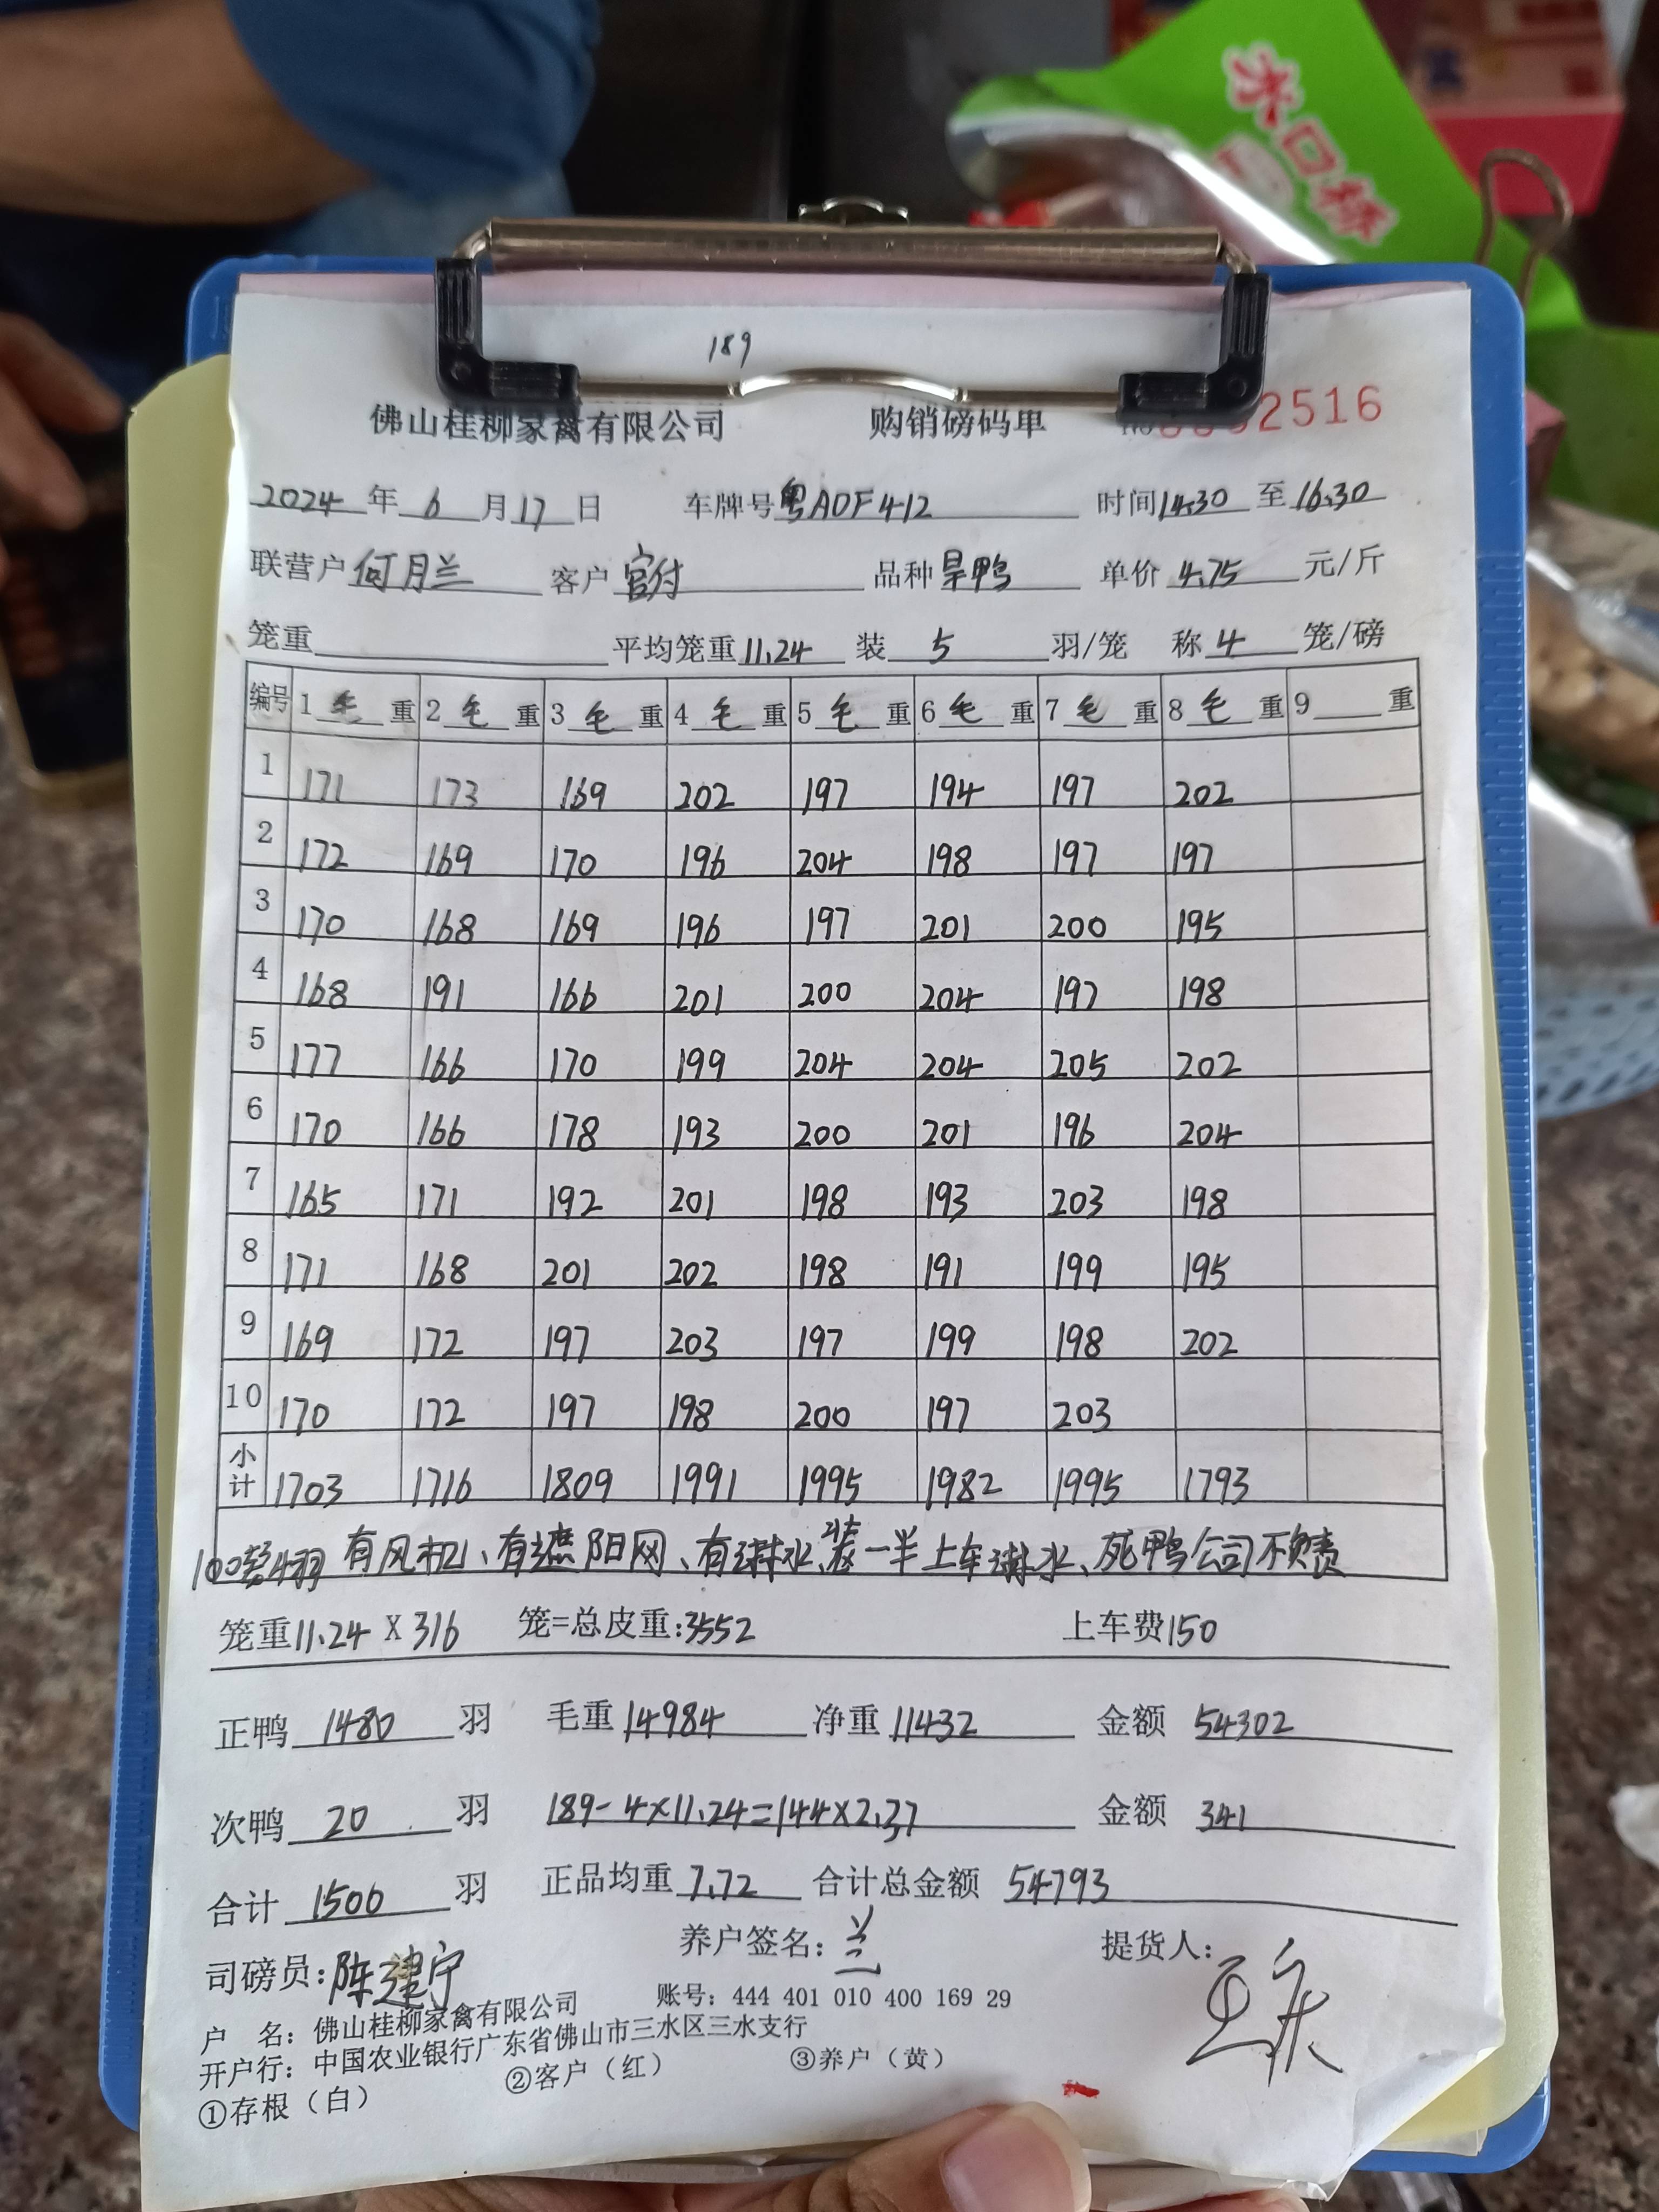 水口杯
189
佛山桂柳家禽有限公司 购销磅码单 2516
2024年6月17日 车牌号粤A0F412 时间14:30至16:30
联营户何月兰 客户官付 品种旱鸭 单价4.75元/斤
笼重 平均笼重11.24 装5羽/笼 称4笼/磅
编号 1毛重 2毛重 3毛重 4毛重 5毛重 6毛重 7毛重 8毛重 9重
1 171 173 169 202 197 194 197 202
2 172 169 170 196 204 198 197 197
3 170 168 169 196 197 201 200 195
4 168 191 166 201 200 204 197 198
5 177 166 170 199 204 204 205 202
6 170 166 178 193 200 201 196 204
7 165 171 192 201 198 193 203 198
8 171 168 201 202 198 191 199 195
9 169 172 197 203 197 199 198 202
10 170 172 197 198 200 197 203
小计 1703 1716 1809 1991 1995 1982 1995 1793
100装4羽 有风机、有遮阳网、有淋水、装一半上车淋水、死鸭公司不负责
笼重11.24X316 笼=总皮重:3552 上车费150
正鸭1480羽 毛重14984 净重11432 金额54302
次鸭20羽 189-4×11.24=144×2.37 金额341
合计1500羽 正品均重7.72 合计总金额54793
司磅员:陈建宁 养户签名:兰 提货人:
户 名:佛山桂柳家禽有限公司 账号:444 401 010 400 169 29
开户行:中国农业银行广东省佛山市三水区三水支行
①存根（白） ②客户（红） ③养户（黄）